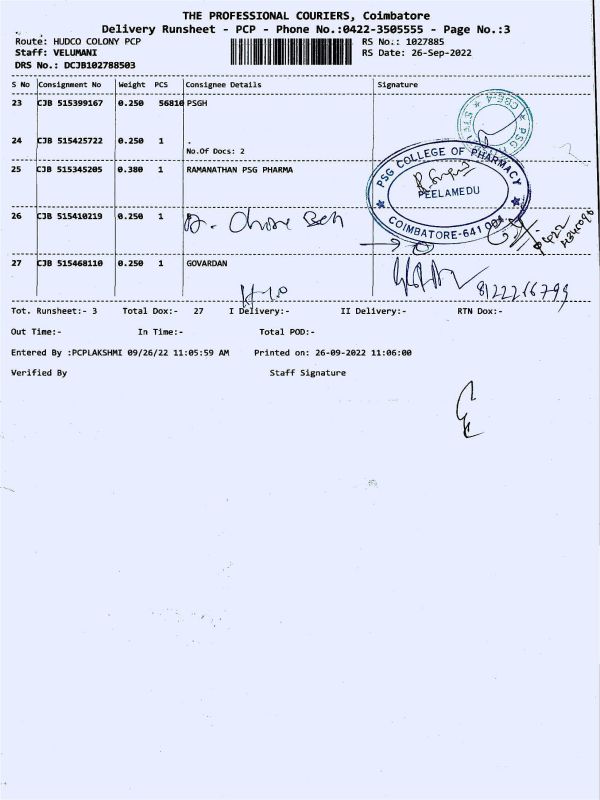 THE PROFESSIONAL COURIERS, Coimbatore
Delivery Runsheet - PCP - Phone No.:0422-3505555 - Page No.:3
Route: HUDCO COLONY PCP RS No.: 1027885
Staff: VELUMANI RS Date: 26-Sep-2022
DRS No.: DCJB102788503
S No Consignment No Weight PCS Consignee Details Signature
23 CJB 515399167 0.250 56810 PSGH
24 CJB 515425722 0.250 1 .
No.Of Docs: 2
25 CJB 515345205 0.380 1 RAMANATHAN PSG PHARMA
PSG COLLEGE OF PHARMACY
PEELAMEDU
COIMBATORE-641 004
26 CJB 515410219 0.250 1
27 CJB 515468110 0.250 1 GOVARDAN
8122216799
Tot. Runsheet:- 3 Total Dox:- 27 I Delivery:- II Delivery:- RTN Dox:-
Out Time:- In Time:- Total POD:-
Entered By :PCPLAKSHMI 09/26/22 11:05:59 AM Printed on: 26-09-2022 11:06:00
Verified By Staff Signature